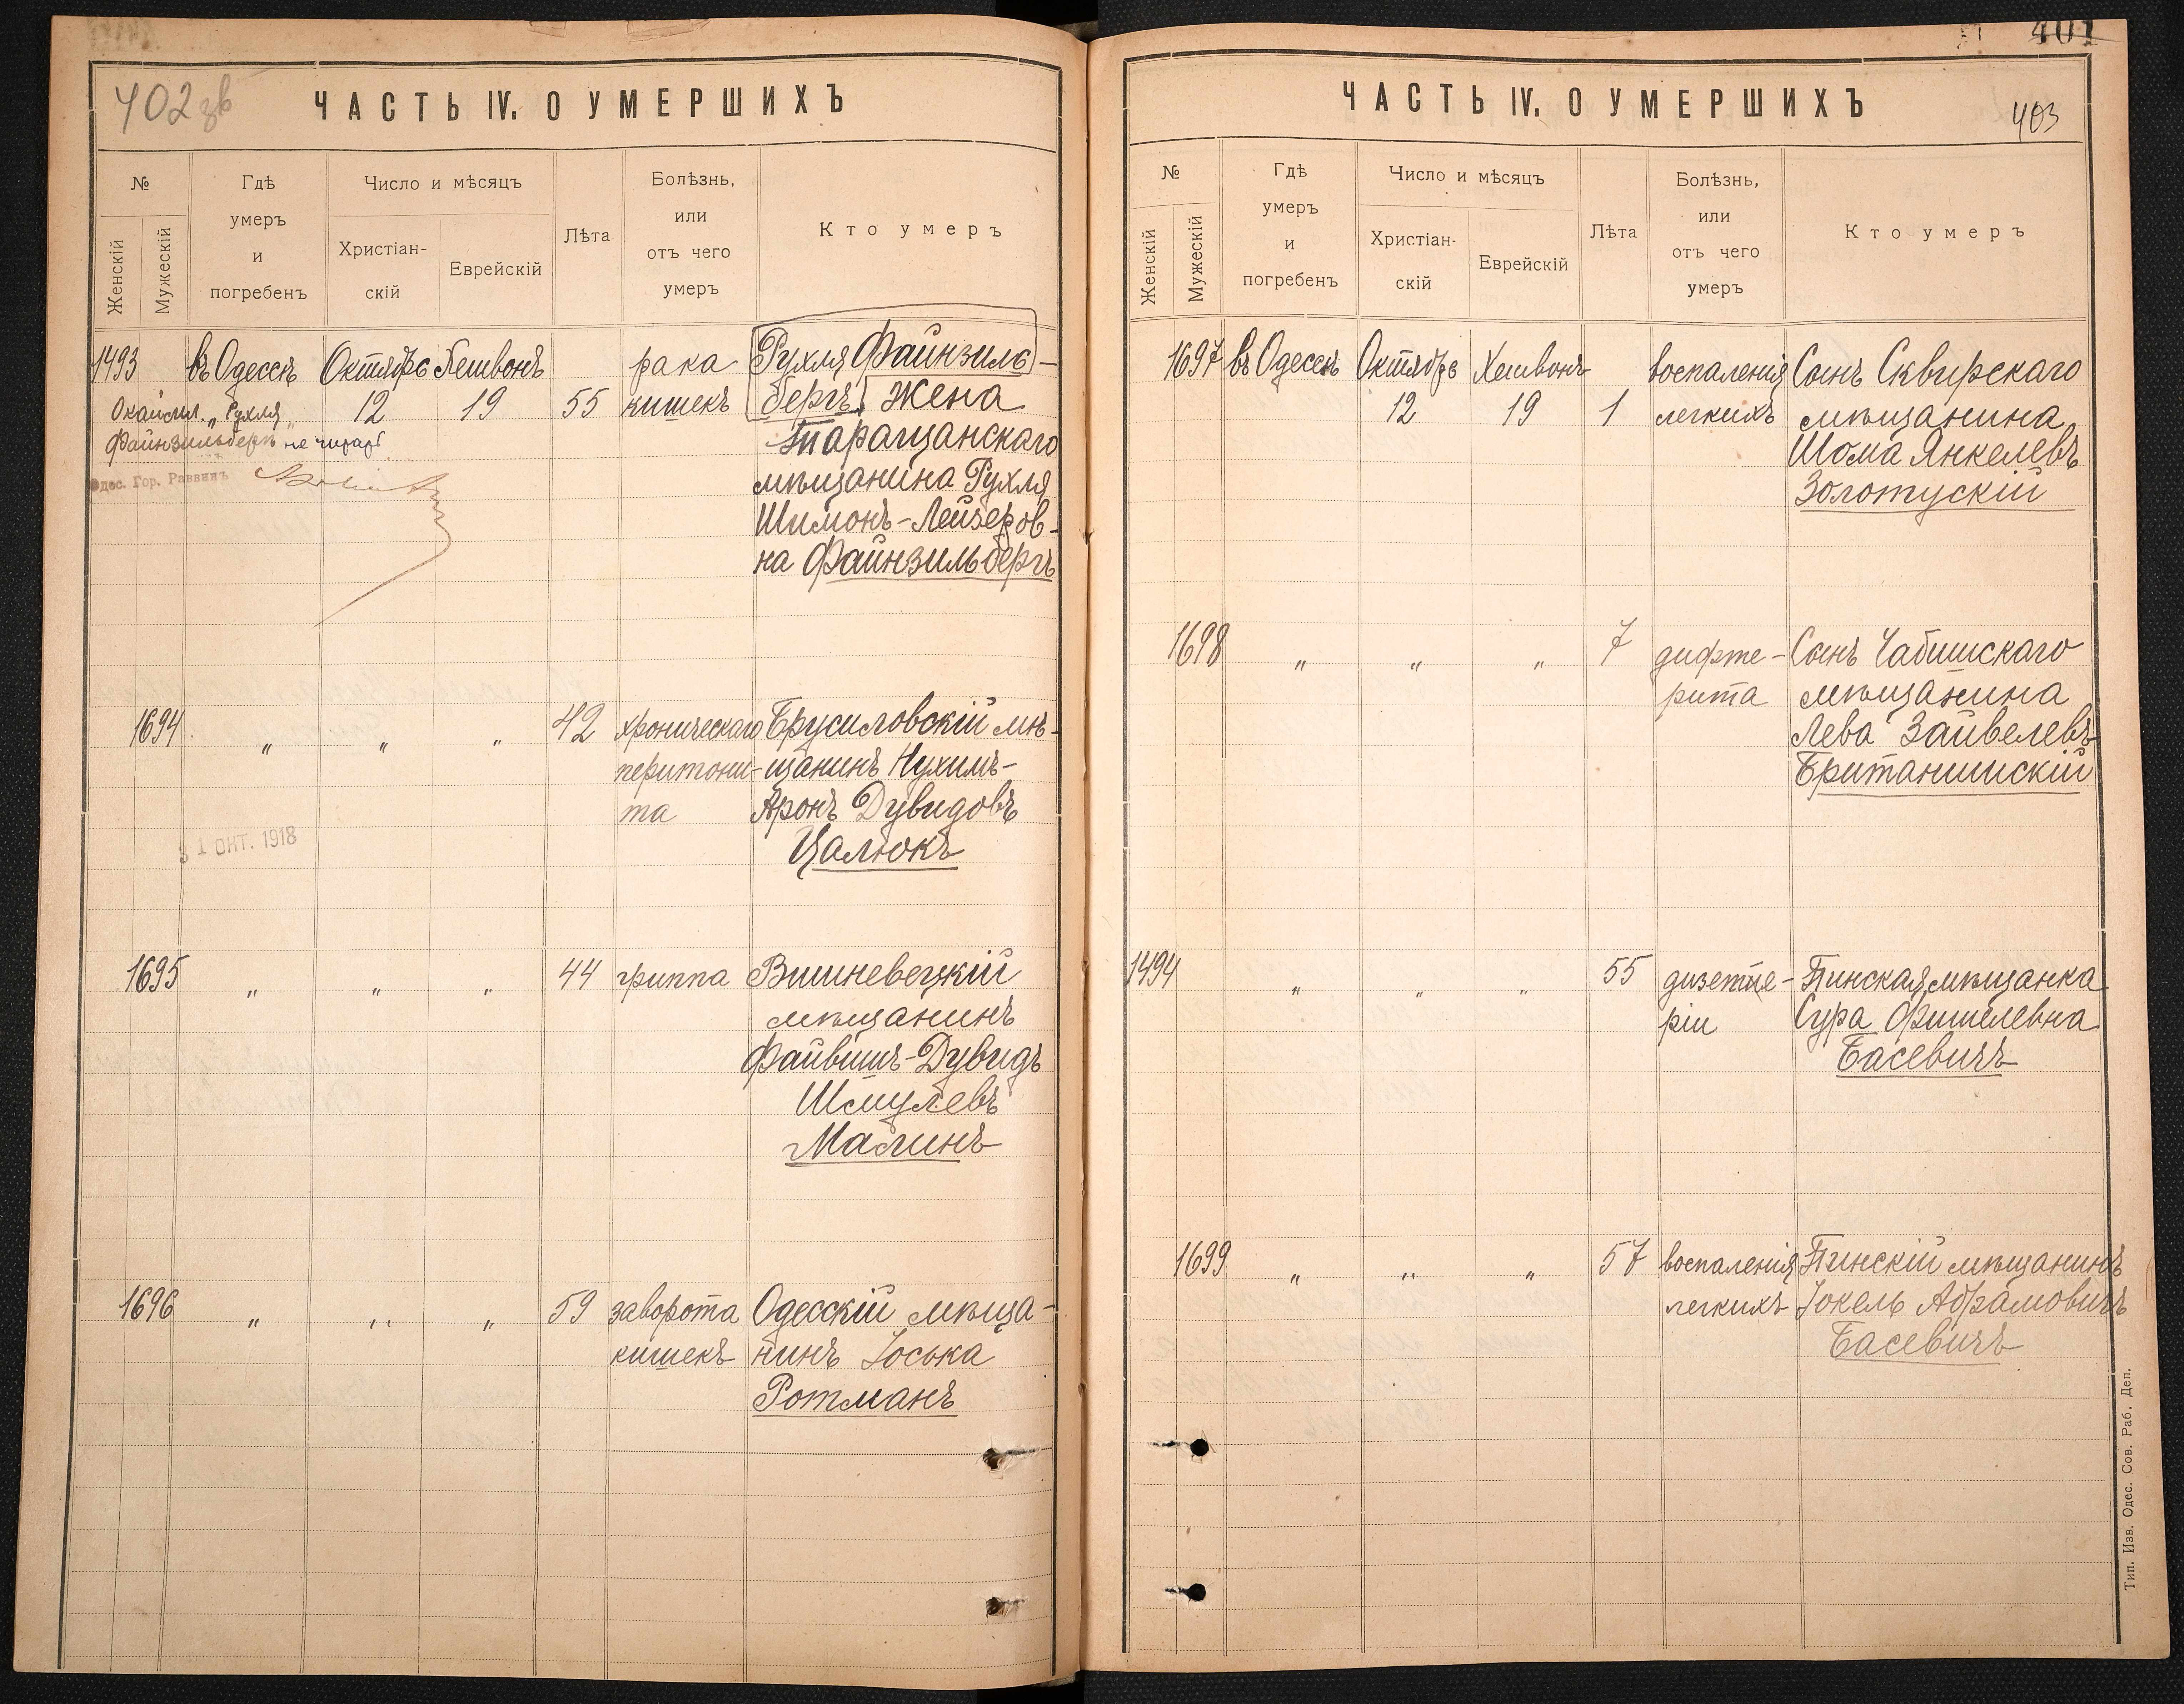 402 зв
ЧАСТЬ IV. О УМЕРШИХЪ
№
Женскій
Мужескій
Гдѣ
умеръ
и
погребенъ
Число и мѣсяцъ
Христіан-
скій
Еврейскій
Лѣта
Болѣзнь,
или
отъ чего
умеръ
Кто умеръ
1493 въ Одессѣ Октябрь Хешвонъ рака Рухля Файнзиль-
12 19 55 кишекъ бергъ Жена
Таращанскаго
мѣщанина Рухля
Шимонъ-Лейзеров-
на Файнзильбергъ
Окаймл. „Рухля
Файнзильбергъ не читать
Одес. Гор. Раввинъ
1694 „ „ „ 42 хроническаго Брусиловскій мѣ-
перитони- щанинъ Нухимъ-
та Аронъ Дувидовъ
Цалюкъ
31 ОКТ. 1918
1695 „ „ „ 44 гриппа Вишневецкій
мѣщанинъ
Файвишъ-Дувидъ
Шмулевъ
Малинъ
1696 „ „ „ 59 заворота Одесскій мѣща-
кишекъ нинъ Іоська
Ротманъ
401
ЧАСТЬ IV. О УМЕРШИХЪ
403
№
Женскій
Мужескій
Гдѣ
умеръ
и
погребенъ
Число и мѣсяцъ
Христіан-
скій
Еврейскій
Лѣта
Болѣзнь,
или
отъ чего
умеръ
Кто умеръ
1697 въ Одессѣ Октябрь Хешвонъ воспаленія Сынъ Сквирскаго
12 19 1 легкихъ мѣщанина
Шома Янкелевъ
Золотускій
1698 „ „ „ 7 дифте- Сынъ
рита мѣщанина
Лева Зайвелевъ
Британишскій
1494 „ „ „ 55 дизенте- Пинская мѣщанка
ріи Сура Фишелевна
Басевичъ
1699 „ „ „ 57 воспаленія Пинскій мѣщанинъ
легкихъ Іокель Абрамовичъ
Басевичъ
Тип. Изв. Одес. Сов. Раб. Деп.